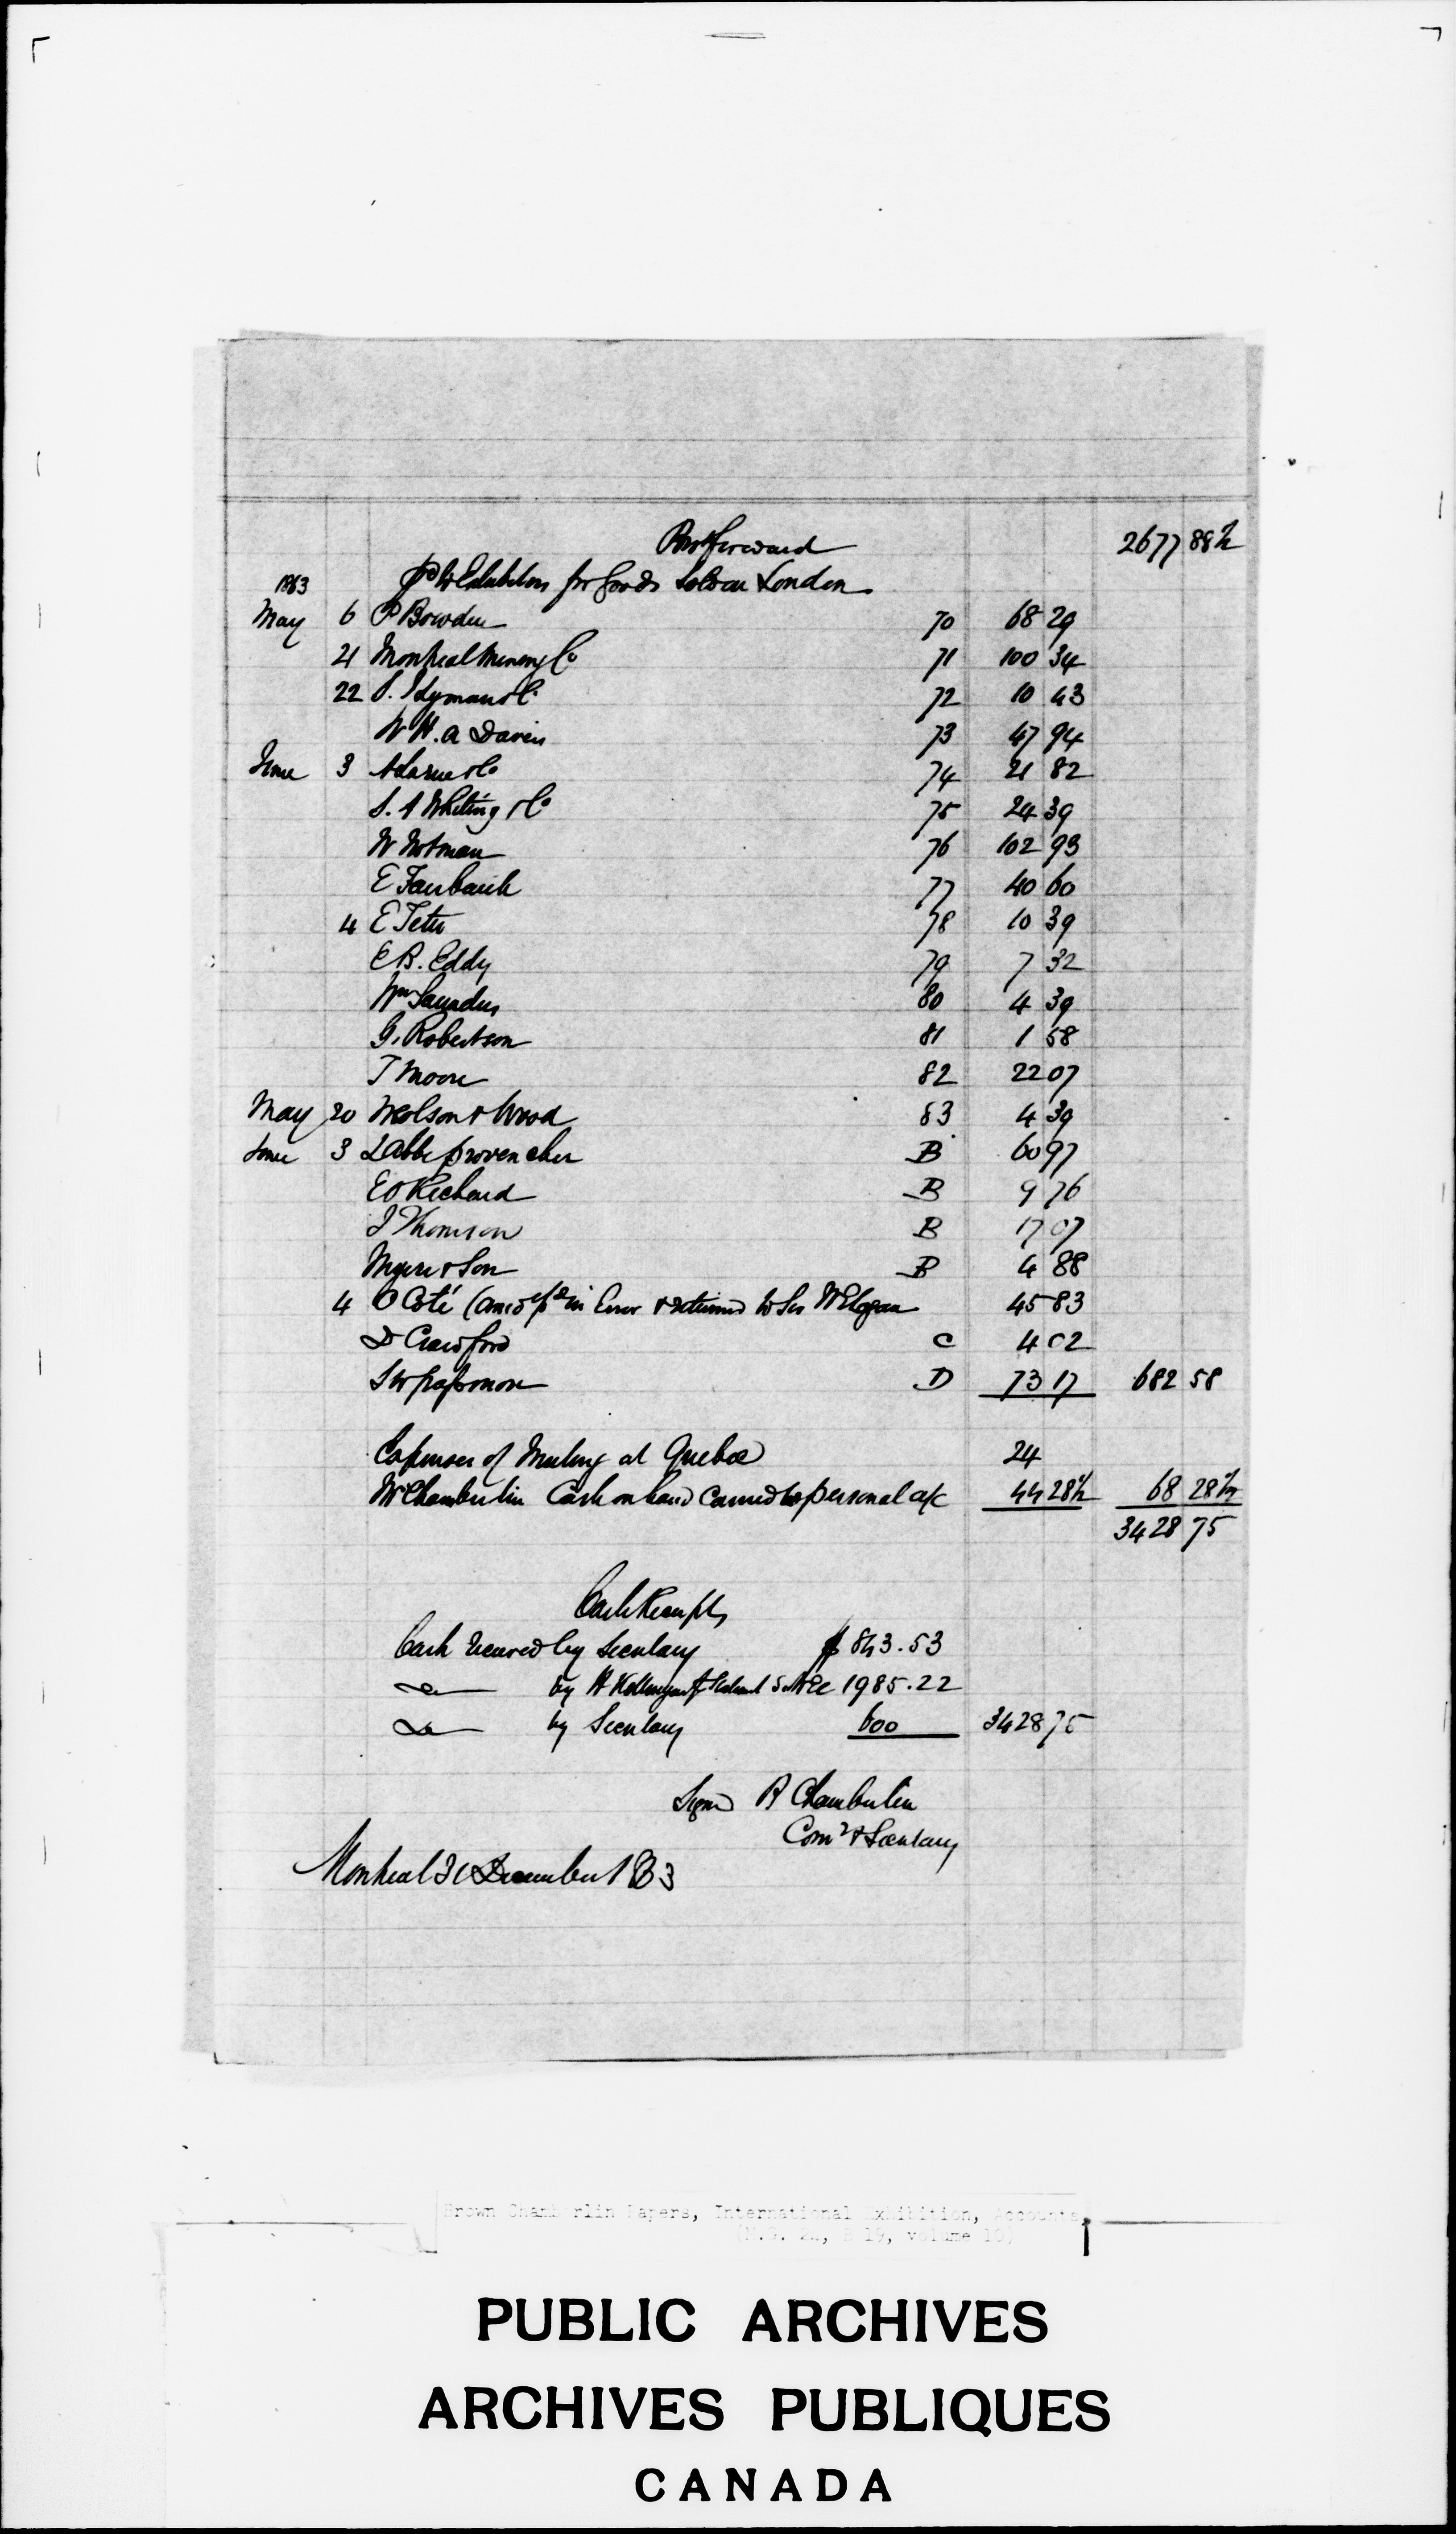 Brot forward 2677 88½
1863 pd to Exhibitors for Goods Sold in London
May 6 P Bowden 70 68 29
21 Montreal Mining Co 71 100 34
22 S. J Lyman & Co 72 10 43
W H. A Davies 73 47 94
June 3 A Larue & Co 74 21 82
S. A Whiting & Co 75 24 39
W Notman 76 102 93
E Fairbank 77 40 60
4 E Tetu 78 10 39
E B. Eddy 79 7 32
Wm Saunders 80 4 39
G. Robertson 81 1 58
T Moore 82 22 07
May 20 Molson & Wood 83 4 39
June 3 L'Abbe provencher B 60 97
E O Richard B 9 76
J Thomson B 17 07
Myers & Son B 4 88
4 O Coté (amo pd in Error & returned to Sir W E Logan 45 83
D Crawford C 4 02
S W passmore D 73 17 682 58
Expenses of Meeting at Quebec 24
Chamberlin Cash on hand Carried to personal a/c 44 28½ 68 28½
3428 75
Cash Receipts
Cash received by Secretary $ 843.53
Do by 1985.22
Do by Secretary 600 3428 75
Signed B Chamberlin
Comr & Secretary
Montreal 31 December 1863
Brown Chamberlin Papers, International Exhibition, Accounts,
(M.G. 24, B 19, volume 10)
PUBLIC ARCHIVES
ARCHIVES PUBLIQUES
CANADA